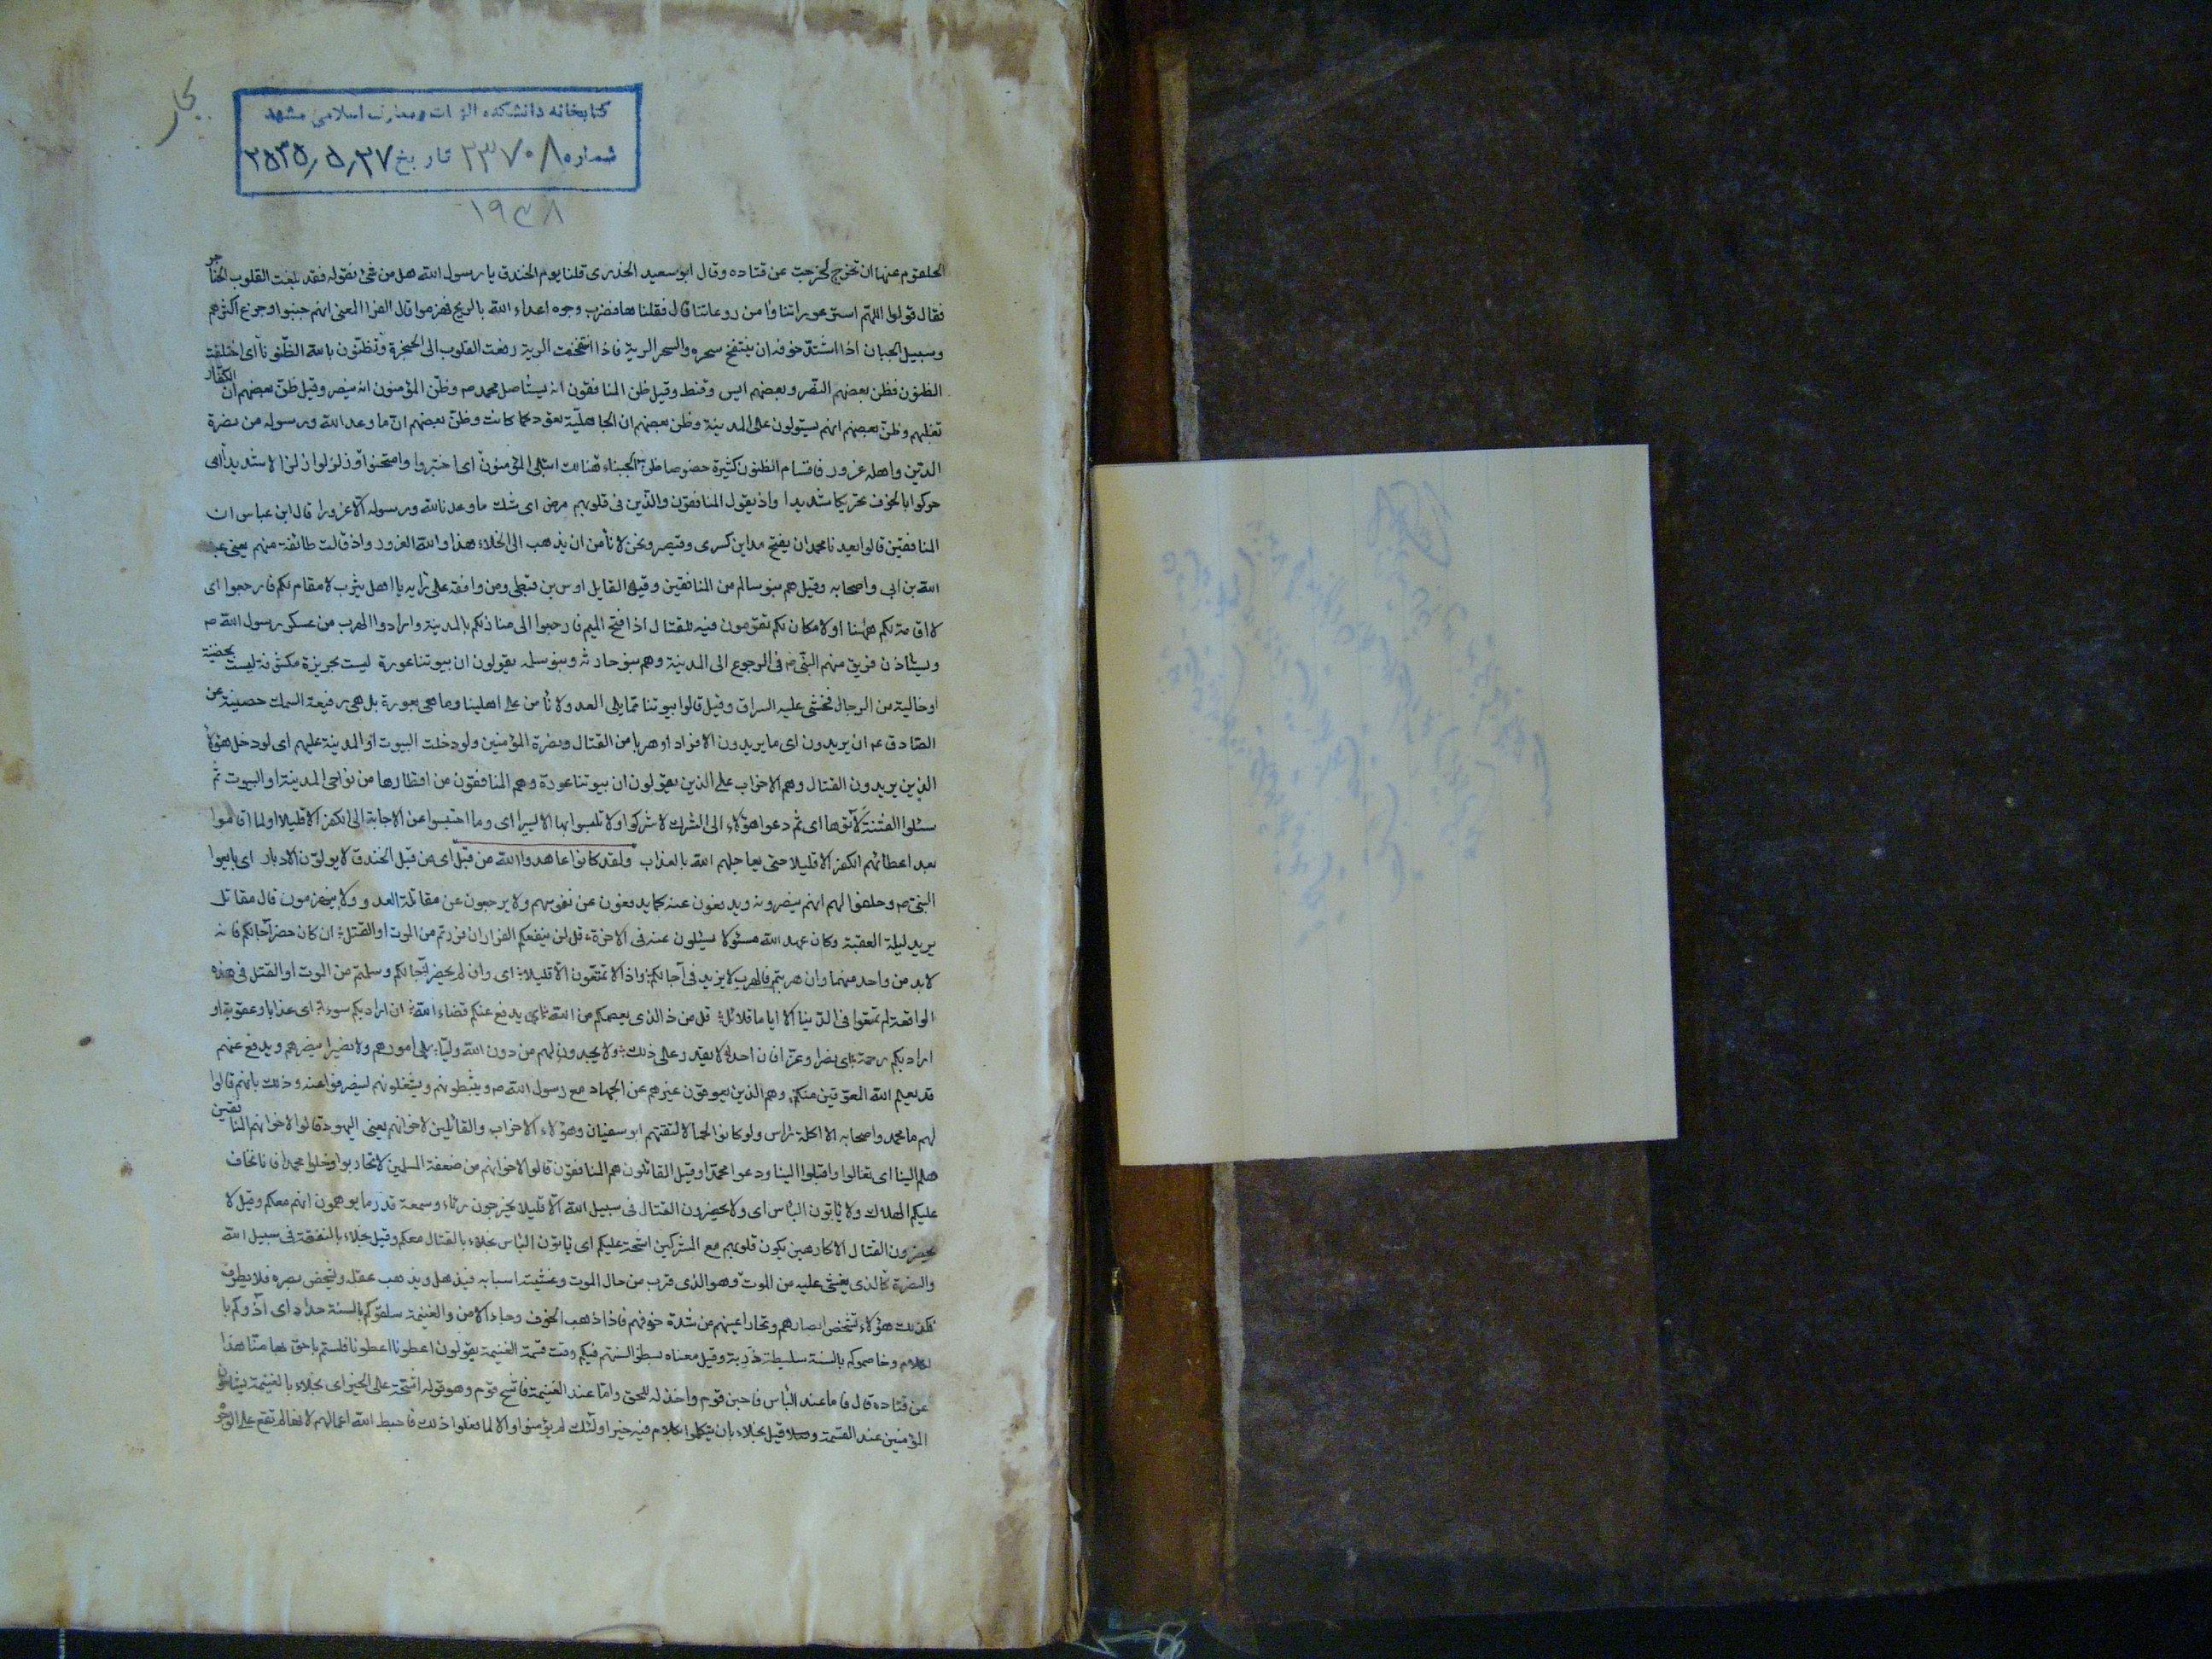 بحار
كتابخانه دانشكده الهيات ومعارف اسلامى مشهد
شماره ٢٣٧٠٨ تاريخ ٢٥٣٥٫٥٫٢٧
١٩٤٨
الحلقوم عنها ان تخرج لخرجت عن قتاده وقال ابو سعيد الخدرى قلنا يوم الخندق يا رسول الله هل من شئ نقوله فقد بلغت القلوب الحناجر
فقال قولوا اللهم استر عوراتنا وامن روعاتنا قال فقلنا ها فضرب وجوه اعداء الله بالريح فهزموا قال الفرا المعنى انهم جبنوا وجزع اكثرهم
وسبيل الجبان اذا اشتد خوفه ان ينتفخ سحره والسحر الرية فاذا انتفخت الرية رفعت القلوب الى الحنجرة وتظنون بالله الظنونا اى اختلفت
الظنون فظن بعضهم النصر وبعضهم ايس وقنط وقيل ظن المنافقون انه يستاصل محمد ص وظن المؤمنون انه ينصر وقيل ظن بعضهم ان الكفار
تغلبهم وظن بعضهم انهم يستولون على المدينة وظن بعضهم ان الجاهلية تعود كما كانت وظن بعضهم ان ما وعد الله ورسوله من نصرة
الدين واهله غرور فاقسام الظنون كثيرة خصوصا ظن الجبناء هنالك ابتلى المؤمنون اى اختبروا وامتحنوا وزلزلوا زلزالا شديدا اى
حركوا بالخوف تحريكا شديدا واذ يقول المنافقون والذين فى قلوبهم مرض اى شك ما وعدنا الله ورسوله الا غرورا قال ابن عباس ان
المنافقين قالوا يعدنا محمد ان يفتح مداين كسرى وقيصر ونحن لا نأمن ان نذهب الى الخلاء هذا والله الغرور واذ قالت طائفة منهم يعنى عبد
الله بن ابى واصحابه وقيل هم بنو سالم من المنافقين وقيل القايل اوس بن قبطى ومن وافقه على رايه يا اهل يثرب لا مقام لكم فارجعوا اى
لا اقامة لكم ههنا او لا مكان لكم تقومون فيه للقتال اذا فتح الميم فارجعوا الى منازلكم بالمدينة وارادوا الهرب من عسكر رسول الله ص
ويستاذن فريق منهم النبى ص فى الرجوع الى المدينة وهم بنو حارثه وبنو سلمه يقولون ان بيوتنا عورة ليست بحريزة مكشوفة ليست بحصينة
او خالية من الرجال نخشى عليه السراق وقيل قالوا بيوتنا مما يلى العدو لا نأمن على اهلينا وما هى بعورة بل هى رفيعة السمك حصينة عن
الصادق ع ان يريدون اى ما يريدون الا فرارا وهربا من القتال ونصرة المؤمنين ولو دخلت البيوت او المدينة عليهم اى لو دخل هؤلاء
الذين يريدون القتال وهم الاحزاب على الذين يقولون ان بيوتنا عورة وهم المنافقون من اقطارها من نواحى المدينة او البيوت ثم
سئلوا الفتنة لآتوها اى ثم دعوا هؤلاء الى الشرك لاشركوا ولا تلبسوا بها الا يسيرا اى وما احتبسوا عن الاجابة الى الكفر الا قليلا او لما اقاموا
بعد اعطائهم الكفر الا قليلا حتى يعاجلهم الله بالعذاب ولقد كانوا عاهدوا الله من قبل اى من قبل الخندق لا يولون الادبار اى بايعوا
النبى ص وحلفوا لهم انهم ينصرونه ويدفعون عنه كما يدفعون عن نفوسهم ولا يرجعون عن مقاتلة العدو ولا ينهزمون قال مقاتل
يريد ليلة العقبة وكان عهد الله مسئولا يسئلون عنه فى الاخرة قل لن ينفعكم الفرار ان فررتم من الموت او القتل ان كان حضر آجالكم فانه
لا بد من واحد منهما وان هربتم فالهرب لا يزيد فى آجالكم واذا لا تمتعون الا قليلا اى وان لم يحضر آجالكم وسلمتم من الموت او القتل فى هذه
الواقعة لم تمتعوا فى الدنيا الا اياما قلائل قل من ذا الذى يعصمكم من الله اى يدفع عنكم قضاء الله ان اراد بكم سوءا اى عذابا وعقوبة او
اراد بكم رحمة اى نصرا وعزا فان احدا لا يقدر على ذلك ولا يجدون لهم من دون الله وليا يلى امورهم ولا نصيرا ينصرهم ويدفع عنهم
قد يعلم الله المعوقين منكم وهم الذين يعوقون غيرهم عن الجهاد مع رسول الله ص ويثبطونهم ويشغلونهم لينصرفوا عنه وذلك بانهم قالوا
لهم ما محمد واصحابه الا اكلة راس ولو كانوا لحما لالتقمهم ابو سفيان وهؤلاء الاحزاب والقائلين لاخوانهم يعنى اليهود قالوا لاخوانهم المنافقين
هلم الينا اى تعالوا واقبلوا الينا ودعوا محمدا وقيل القائلون هم المنافقون قالوا لاخوانهم من ضعفة المسلمين لا تحاربوا وخلوا محمدا فانا نخاف
عليكم الهلاك ولا يأتون البأس اى ولا يحضرون القتال فى سبيل الله الا قليلا يخرجون رئاء وسمعة قدر ما يوهمون انهم معكم وقيل لا
يحضرون القتال الا كارهين يكون قلوبهم مع المشركين اشحة عليكم اى يأتون البأس بخلاء بالقتال معكم وقيل بخلاء بالنفقة فى سبيل الله
والنصرة كالذى يغشى عليه من الموت وهو الذى قرب من حال الموت وغشيته اسبابه فيذهل ويذهب عقله ويشخص بصره فلا يطرف
فكذلك هؤلاء تشخص ابصارهم وتحار اعينهم من شدة خوفهم فاذا ذهب الخوف وجاء الامن والغنيمة سلقوكم بالسنة حداد اى آذوكم با
لكلام وخاصموكم بالسنة سليطة ذربة وقيل معناه بسطوا السنتهم فيكم وقت قسمة الغنيمة يقولون اعطونا اعطونا فلستم باحق بها منا هذا
عن قتاده قال فاما عند البأس فاجبن قوم واخذله للحق واما عند الغنيمة فاشح قوم وهو قوله اشحة على الخير اى بخلاء بالغنيمة يشاحون
المؤمنين عند القسمة وقيل بخلاء بان يتكلموا بكلام فيه خير اولئك لم يؤمنوا والا لما فعلوا ذلك فاحبط الله اعمالهم لانها لم تقع على الوجوه